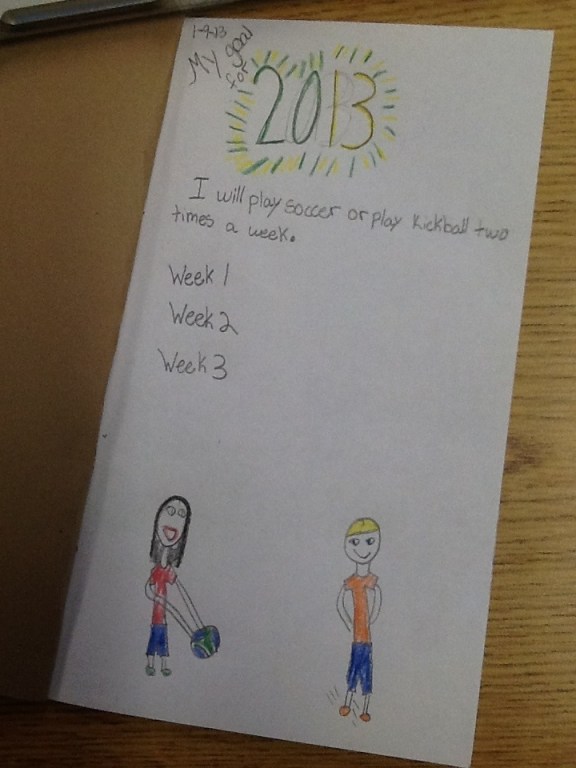 1-9-13
My goal
for
2013
I will play soccer or play kickball two
times a week.
Week 1
Week 2
Week 3